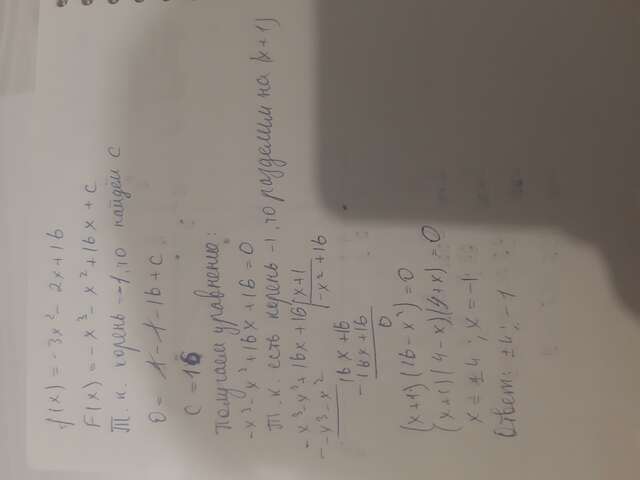 f(x) = -3x² - 2x + 16
F(x) = -x³ - x² + 16x + C
Т.к. корень -1, то найдём C
0 = 1 - 1 - 16 + C
C = 16
Получаем уравнение:
-x³ - x² + 16x + 16 = 0
Т.к. есть корень -1, то разделим на (x+1)
-x³ - x² + 16x + 16 | x+1
-x³ - x² | -x² + 16
16x + 16
-16x + 16
0
(x+1)(16 - x²) = 0
(x+1)(4-x)(4+x) = 0
x = ±4; x = -1
Ответ: ±4; -1